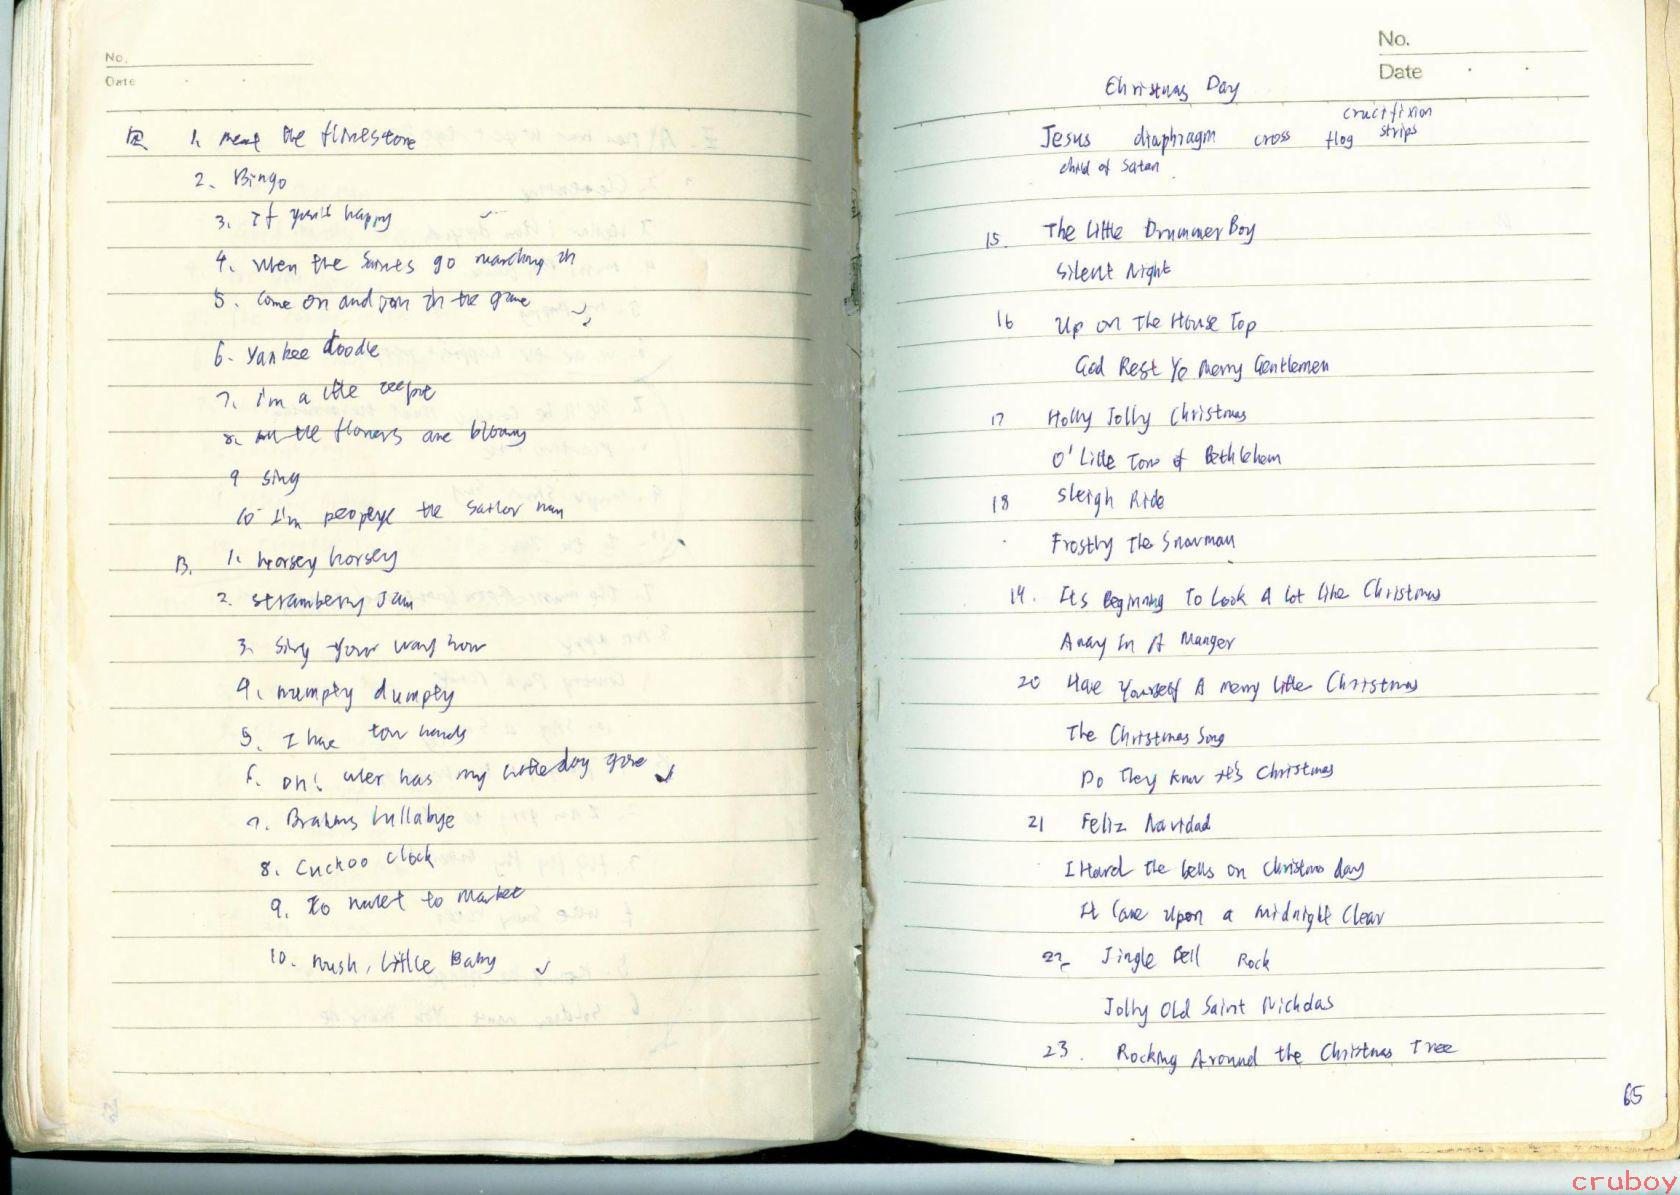 No.
Date
1. Meat the flinestone
2. Bingo
3. If your's happy
4. when the Saintes go marching in
5. Come on and join in the game
6. Yankee doodle
7. I'm a little teepot
8. All the flowers are
9 Sing
10 I'm peopeye the Sailor man
B. 1. horsey horsey
2. strawberry Jam
3. Sing your way
4. numpty dumpty
5. I have tow hands
6. Oh! wher has my little dog gone
7. Brahms Lullabye
8. Cuckoo clock
9. to market
10. Hush, little Baby
No.
Date
Christmas Day
crucifixion
Jesus diaphragm cross flog strips
child of Satan
15. The Little Drummer Boy
Silent Night
16 Up on The House Top
God Rest Ye Merry Gentlemen
17 Holly Jolly Christmas
O' Little Town of Bethlehem
18 Sleigh Ride
Frostly The Snowman
19. Its Beginning To Look A Lot like Christmas
Away In A Manger
20 Have Yourself A merry little Christmas
The Christmas Song
Do They Know It's Christmas
21 Feliz Navidad
I Heard the bells on Christmas day
It Came Upon a Midnight Clear
22 Jingle Bell Rock
Jolly Old Saint Nicholas
23. Rocking Around the Christmas Tree
65
cruboy